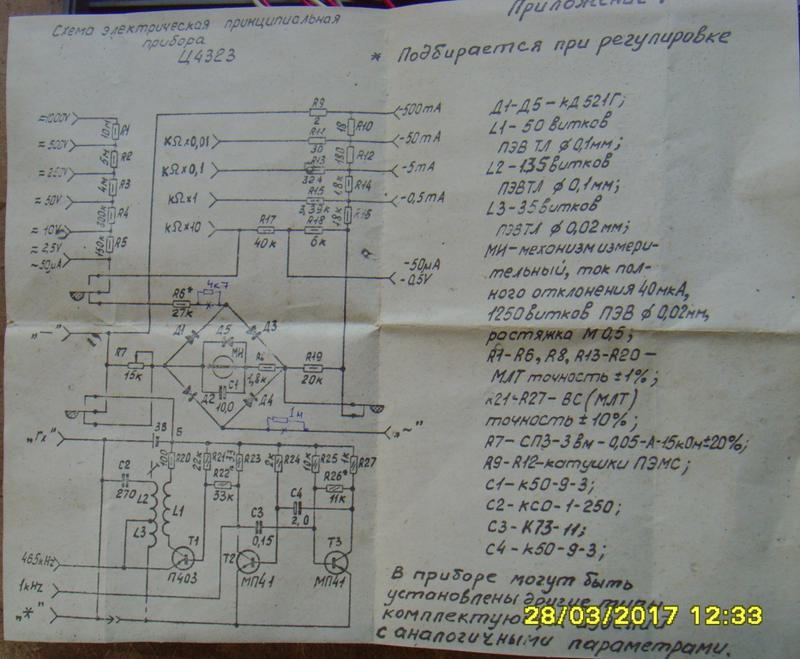 Приложение
Схема электрическая принципиальная
прибора
Ц4323
* Подбирается при регулировке
=1000V
10м
R1
=500V
5м
R2
=250V
4м
R3
=50V
R4
=10V
150к
R5
=2,5V
~50μA
R9
2
-500mA
18
R10
КΩx0,01
R11
30
-50mA
180
R12
КΩx0,1
R13
-5mA
1,8к
R14
КΩx1
R15
3,39к
-0,5mA
18к
КΩx10
R17
40к
R18
6к
-50μA
-0,5V
R6*
27к
4к7
Д1
Д5
Д3
МИ
„—"
R7
15к
1,8к
R19
20к
Д2
С1
10,0
Д4
1м
„Гх"
3В
Б
„~"
С2
270
L2
L3
L1
100
R20
R21
R22*
33к
R23
R24
R25
R26*
11к
1к
R27
С4
2,0
С3
0,15
Т1
П403
Т2
МП41
Т3
МП41
465kHz
1kHz
„*"
Д1-Д5-КД521Г;
L1-50 витков
ПЭВ ТЛ ϕ 0,1мм;
L2-135 витков
ПЭВТЛ ϕ 0,1мм;
L3-35 витков
ПЭВТЛ ϕ 0,02мм;
МИ-механизм измери-
тельный, ток пол-
ного отклонения 40мкА,
1250 витков ПЭВ ϕ 0,02мм,
растяжка М 0,5;
R1-R6, R8, R13-R20-
МЛТ точность ±1%;
R21-R27-ВС (МЛТ)
точность ±10%;
R7-СП3-3вм-0,05-А-15кОм±20%;
R9-R12-катушки ПЭМС;
С1-К50-9-3;
С2-КСО-1-250;
С3-К73-11;
С4-К50-9-3;
В приборе могут быть
установлены другие типы
комплектую
с аналогичными параметрами.
28/03/2017 12:33